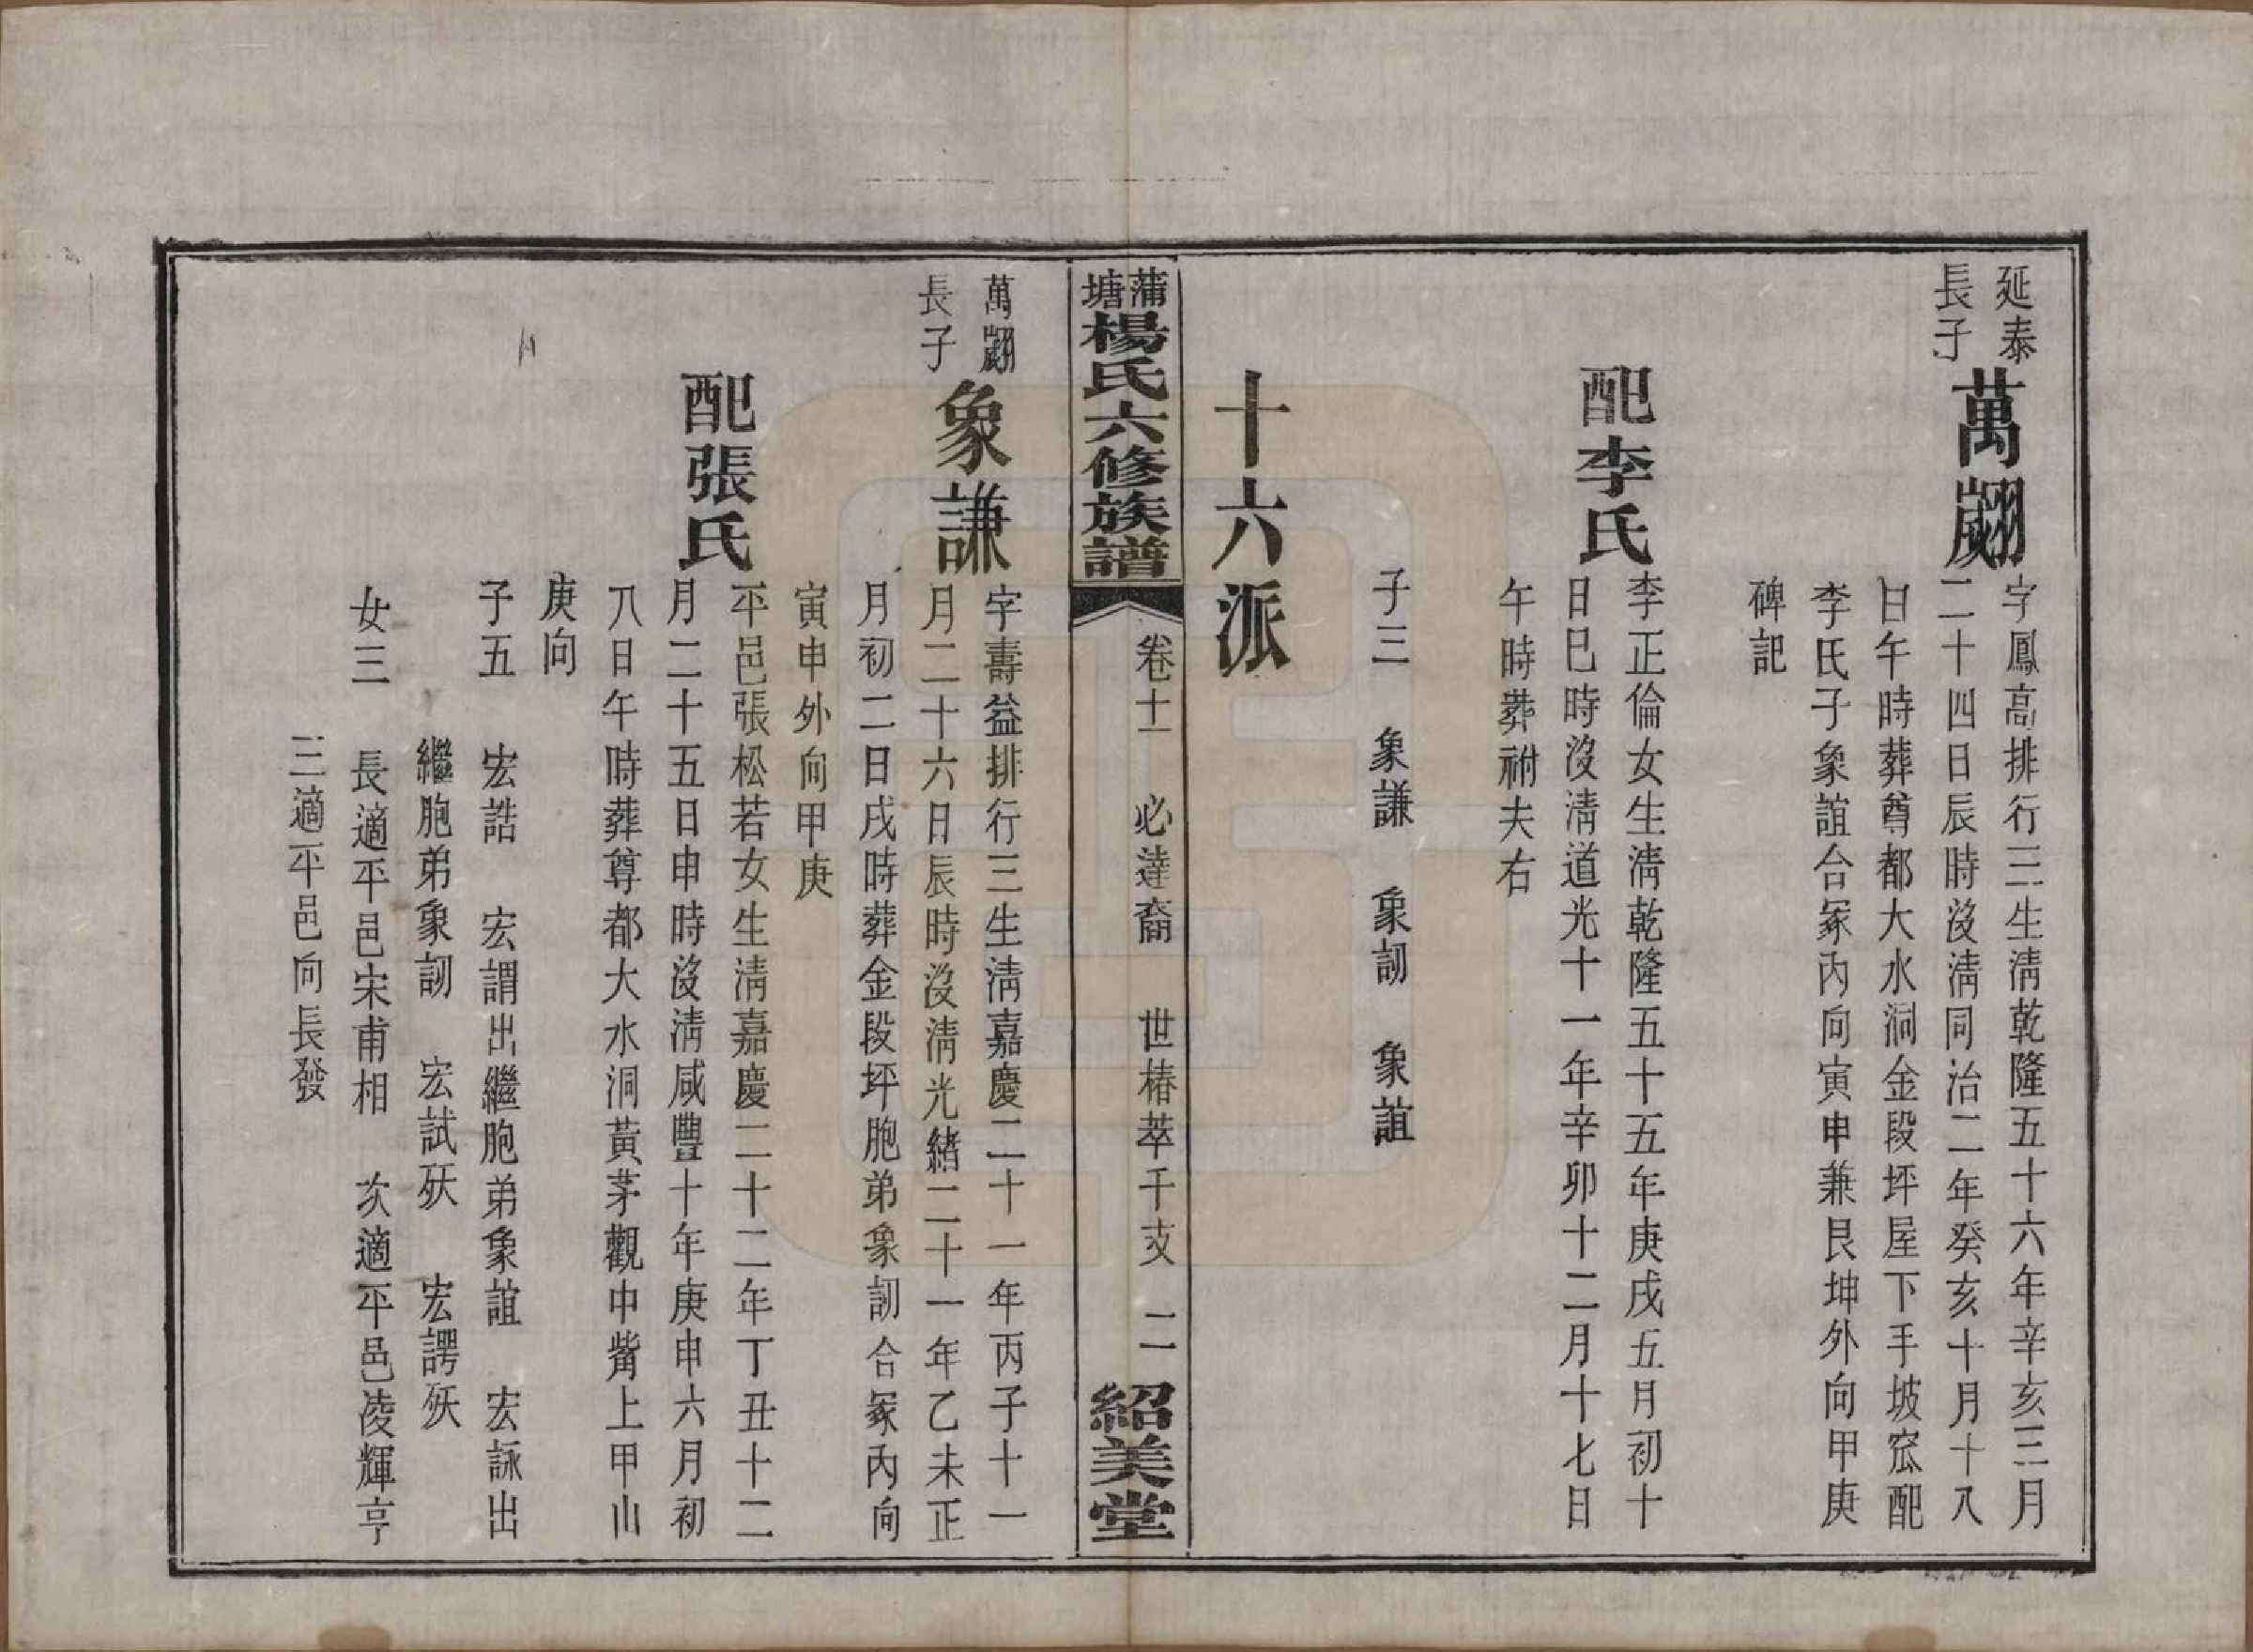 延泰
長子
萬翽
字鳳高排行三生淸乾隆五十六年辛亥三月
二十四日辰時沒淸同治二年癸亥十月十八
日午時葬尊都大水洞金段坪屋下手坡窊配
李氏子象誼合冢內向寅申兼艮坤外向甲庚
碑記
配李氏
李正倫女生淸乾隆五十五年庚戌五月初十
日巳時沒淸道光十一年辛卯十二月十七日
午時葬祔夫右
子三 象謙 象訒 象誼
十六派
蒲塘楊氏六修族譜 卷十一 必達裔 世椿萃千支 二 紹美堂
萬翽
長子
象謙
字壽益排行三生淸嘉慶二十一年丙子十一
月二十六日辰時沒淸光緖二十一年乙未正
月初二日戌時葬金段坪胞弟象訒合冢內向
寅申外向甲庚
配張氏
平邑張松若女生淸嘉慶二十二年丁丑十二
月二十五日申時沒淸咸豐十年庚申六月初
八日午時葬尊都大水洞黃茅觀中觜上甲山
庚向
子五 宏誥 宏謂出繼胞弟象誼 宏詠出
繼胞弟象訒 宏試殀 宏諤殀
女三 長適平邑宋甫相 次適平邑凌輝亨
三適平邑向長發